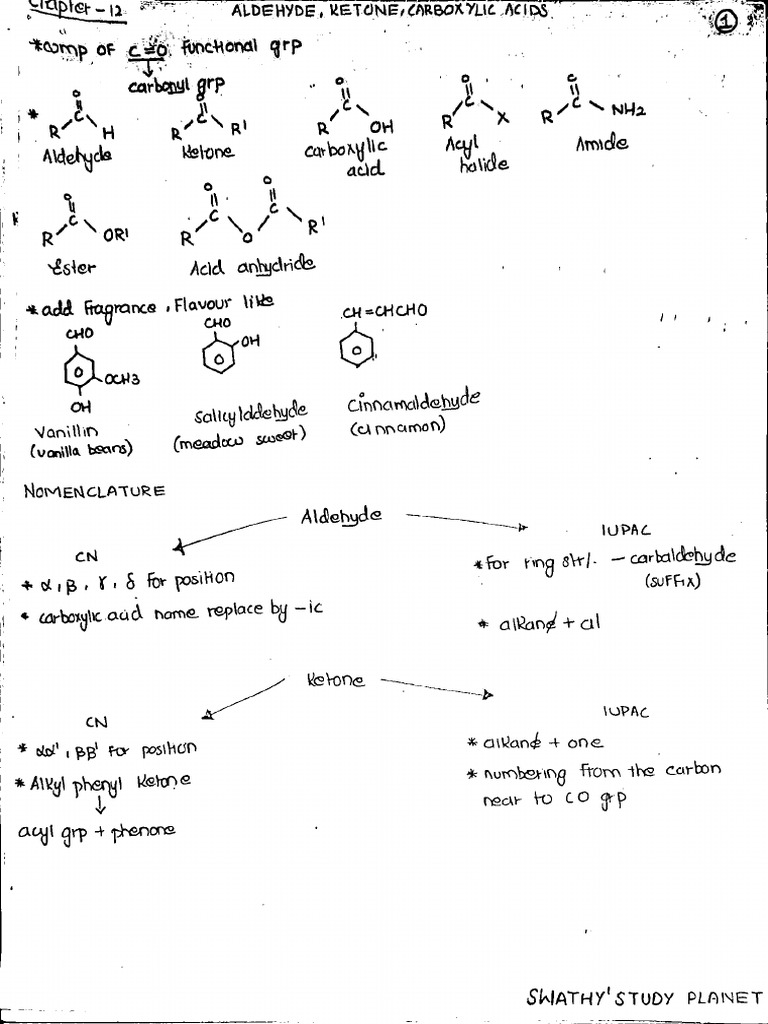 Chapter -12
ALDEHYDE, KETONE, CARBOXYLIC ACIDS
1
*comp of C=O functional grp
carbonyl grp
* O O O O O
C C C C C
R H R R' R OH R X R NH2
Aldehyde Ketone carboxylic acid Acyl halide Amide
O O O
C C C
R OR' R O R'
Ester Acid anhydride
*add Fragrance, Flavour like
CHO CHO CH=CHCHO
OH
OCH3
OH
Vanillin Salicylaldehyde Cinnamaldehyde
(vanilla beans) (meadow sweet) (cinnamon)
NOMENCLATURE
Aldehyde
CN IUPAC
* α, β, γ, δ for position
* carboxylic acid name replace by -ic
*For ring str/. - carbaldehyde
(SUFFIX)
* alkane + al
Ketone
CN IUPAC
* αα', ββ' for position
* Alkyl phenyl ketone
acyl grp + phenone
* alkane + one
* numbering from the carbon
near to CO grp
SWATHY'STUDY PLANET